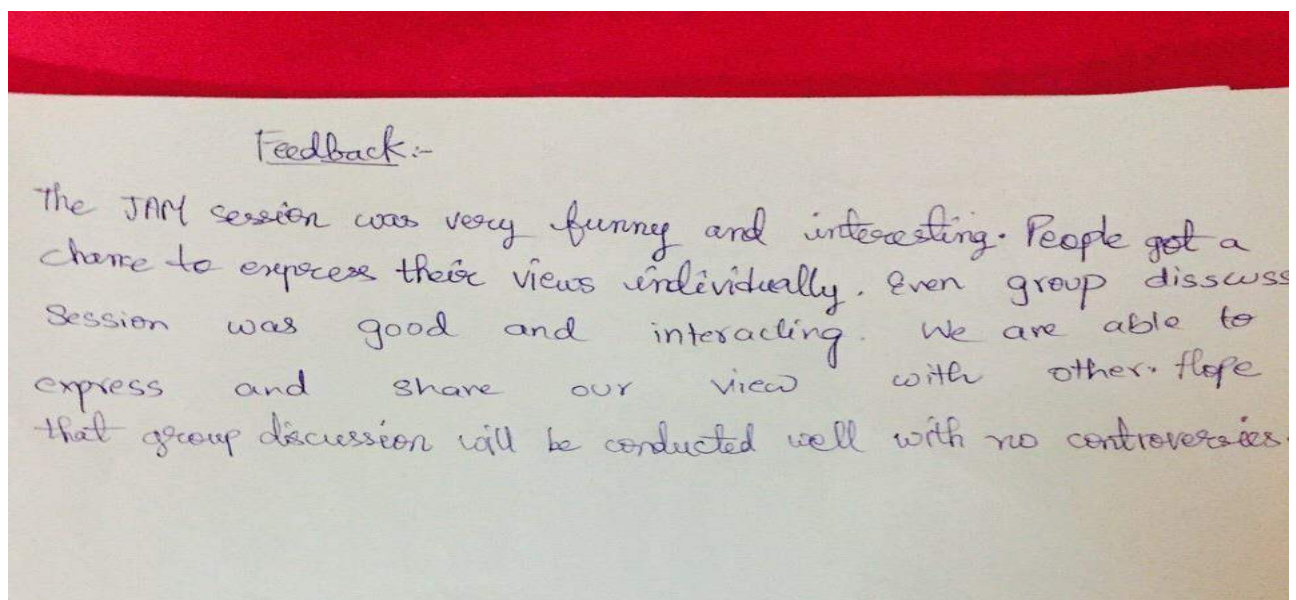 Feedback:-
The JAM session was very funny and interesting. People got a
chance to express their views individually. Even group disscuss
Session was good and interacting. We are able to
express and share our view with other. Hope
that group discussion will be conducted well with no controversies.